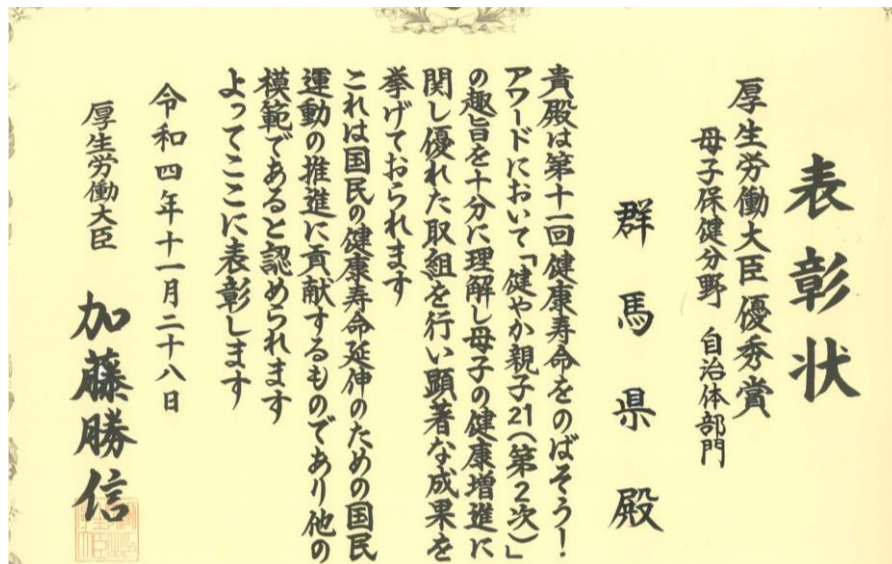 表彰状
厚生労働大臣優秀賞
母子保健分野 自治体部門
群馬県殿
貴殿は第十一回健康寿命をのばそう!
アワードにおいて「健やか親子21(第2次)」
の趣旨を十分に理解し母子の健康増進に
関し優れた取組を行い顕著な成果を
挙げておられます
これは国民の健康寿命延伸のための国民
運動の推進に貢献するものであり他の
模範であると認められます
よってここに表彰します
令和四年十一月二十八日
厚生労働大臣 加藤勝信